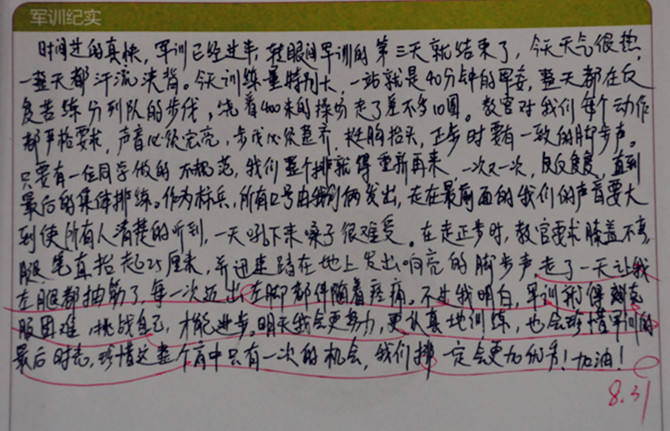 军训纪实
时间过的真快，军训已经过半，转眼间军训的第三天就结束了，今天天气很热，
一整天都汗流浃背。今天训练量特别大，一站就是40分钟的军姿，整天都在反
复苦练分列队的步伐，绕着400米的操场走了差不多10圈。教官对我们每个动作
都严格要求，声音必须宏亮，步伐必须整齐，挺胸抬头，正步时要有一致的脚步声。
只要有一位同学做的不规范，我们整个排就得重新再来，一次又一次，反反复复，直到
最后的集体排练。作为标兵，所有口号由我们俩发出，走在最前面的我们的声音要大
到使所有人清楚的听到，一天吼下来嗓子很难受。在走正步时，教官要求膝盖不弯，
腿笔直抬起25厘米，并迅速踏在地上发出响亮的脚步声，走了一天让我
左腿都抽筋了，每一次迈出左脚都伴随着疼痛。不过我明白，军训就得克
服困难，挑战自己，才能进步。明天我会更努力，更认真地训练，也会珍惜军训的
最后时光，珍惜这整个高中只有一次的机会，我们排一定会更加优秀！加油！
8.31